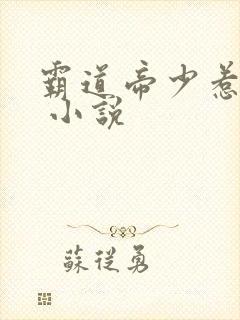 霸道帝少惹
小説
蘇從勇